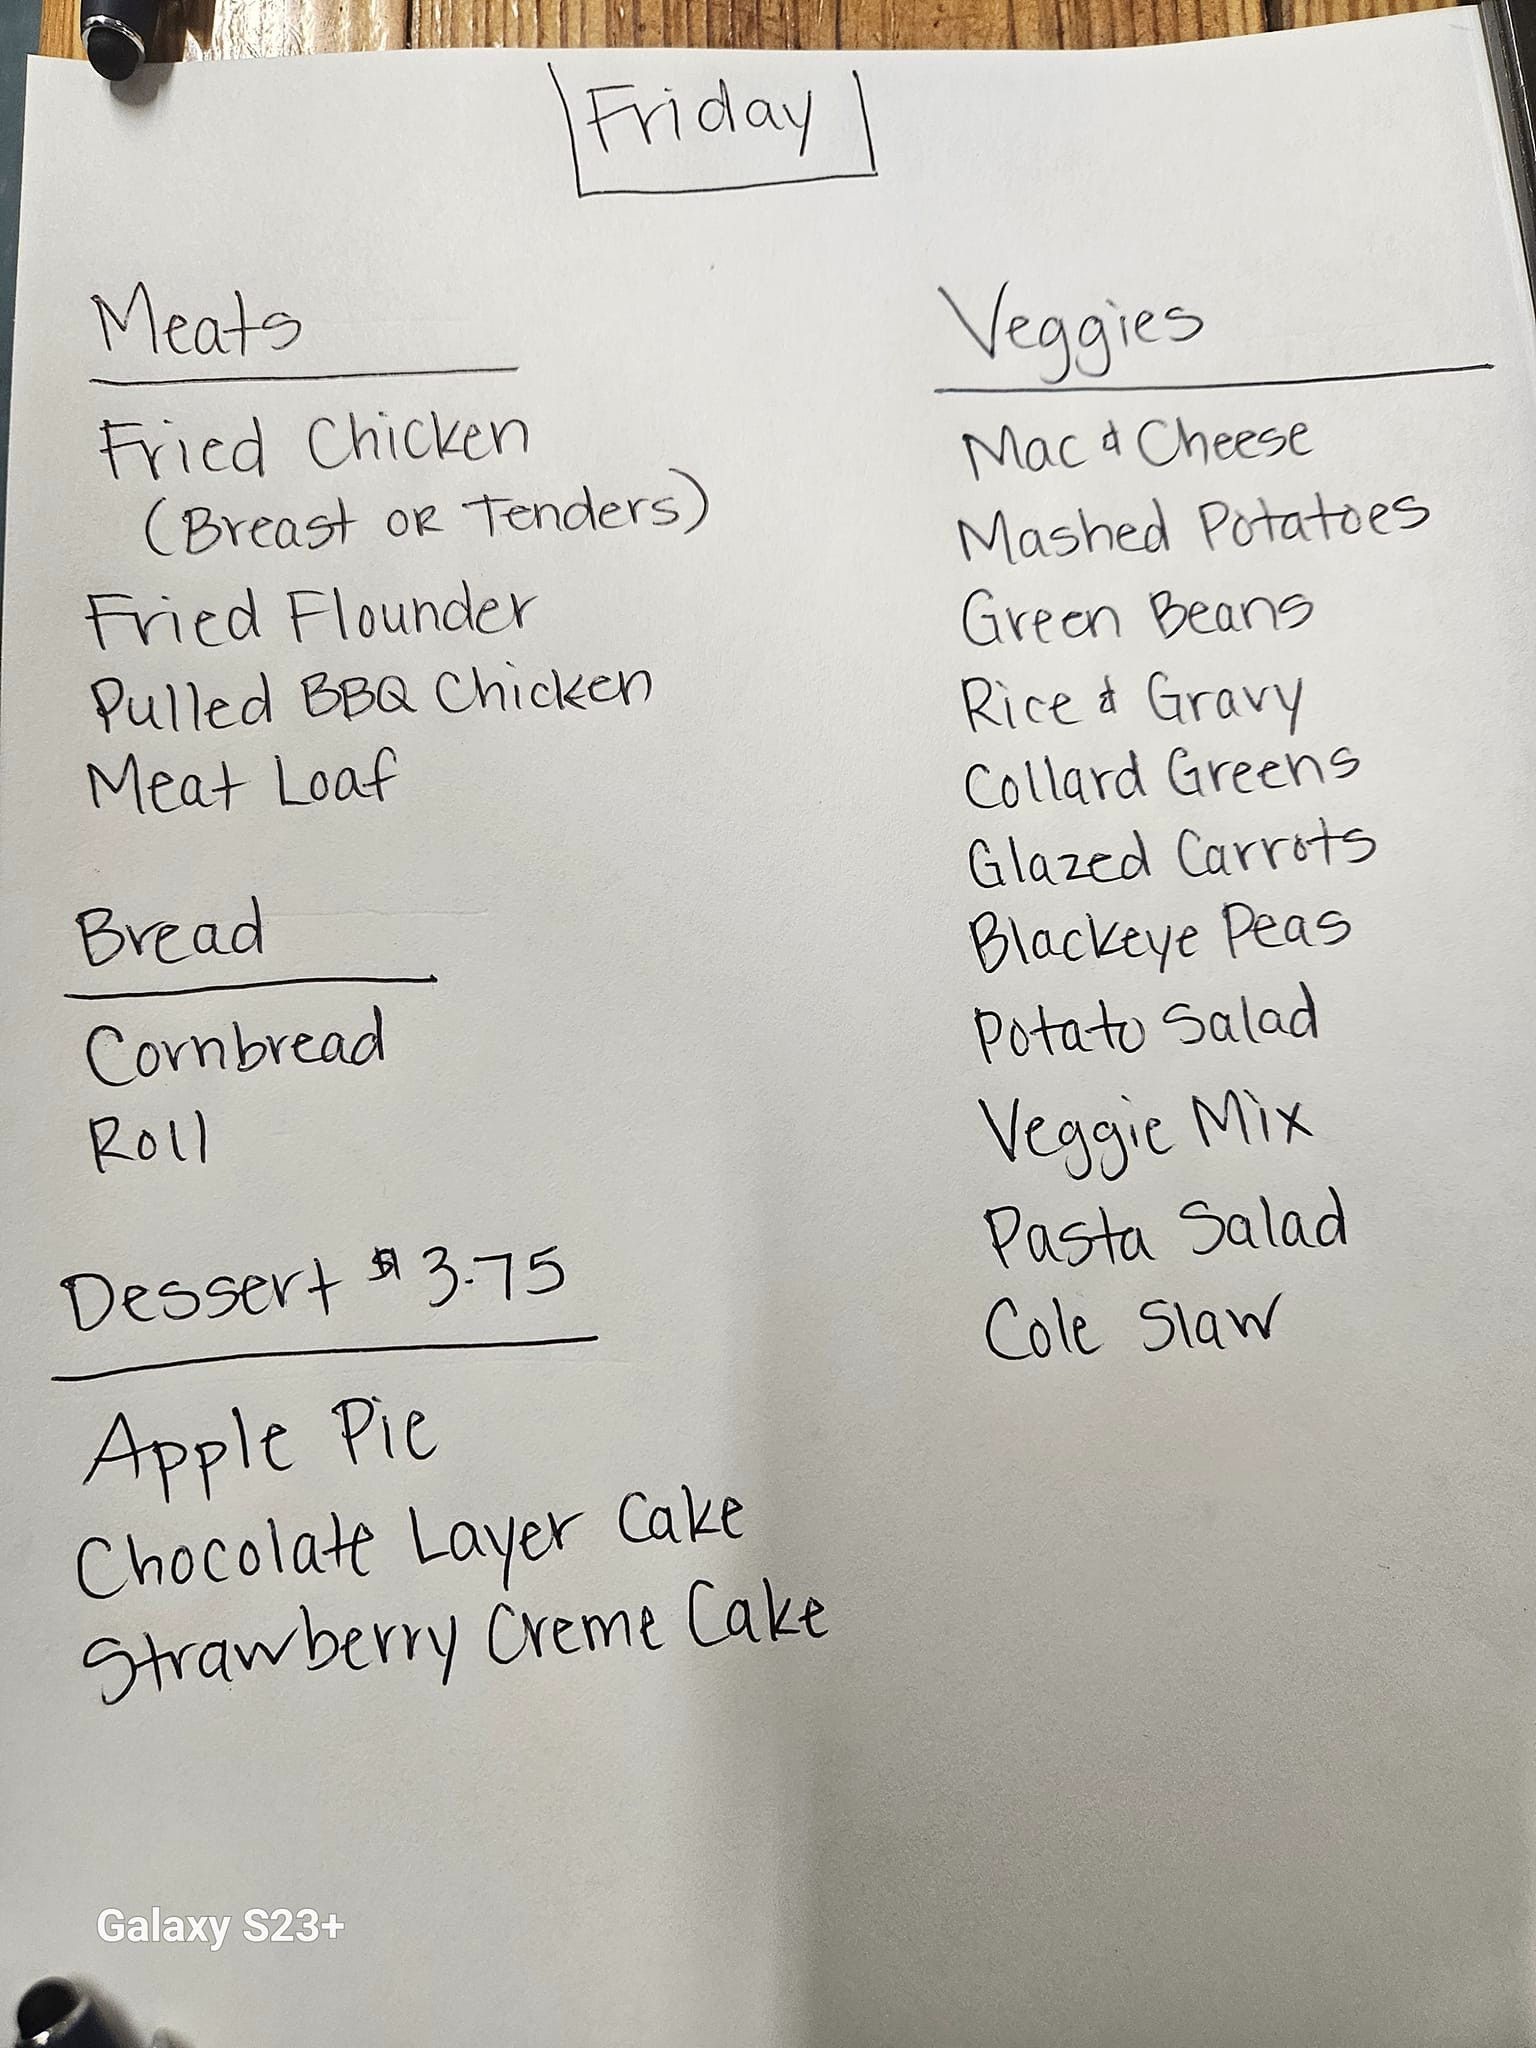 Friday
Meats
Fried Chicken
(Breast OR Tenders)
Fried Flounder
Pulled BBQ Chicken
Meat Loaf
Bread
Cornbread
Roll
Dessert $3.75
Apple Pie
Chocolate Layer Cake
Strawberry Creme Cake
Veggies
Mac & Cheese
Mashed Potatoes
Green Beans
Rice & Gravy
Collard Greens
Glazed Carrots
Blackeye Peas
Potato Salad
Veggie Mix
Pasta Salad
Cole Slaw
Galaxy S23+